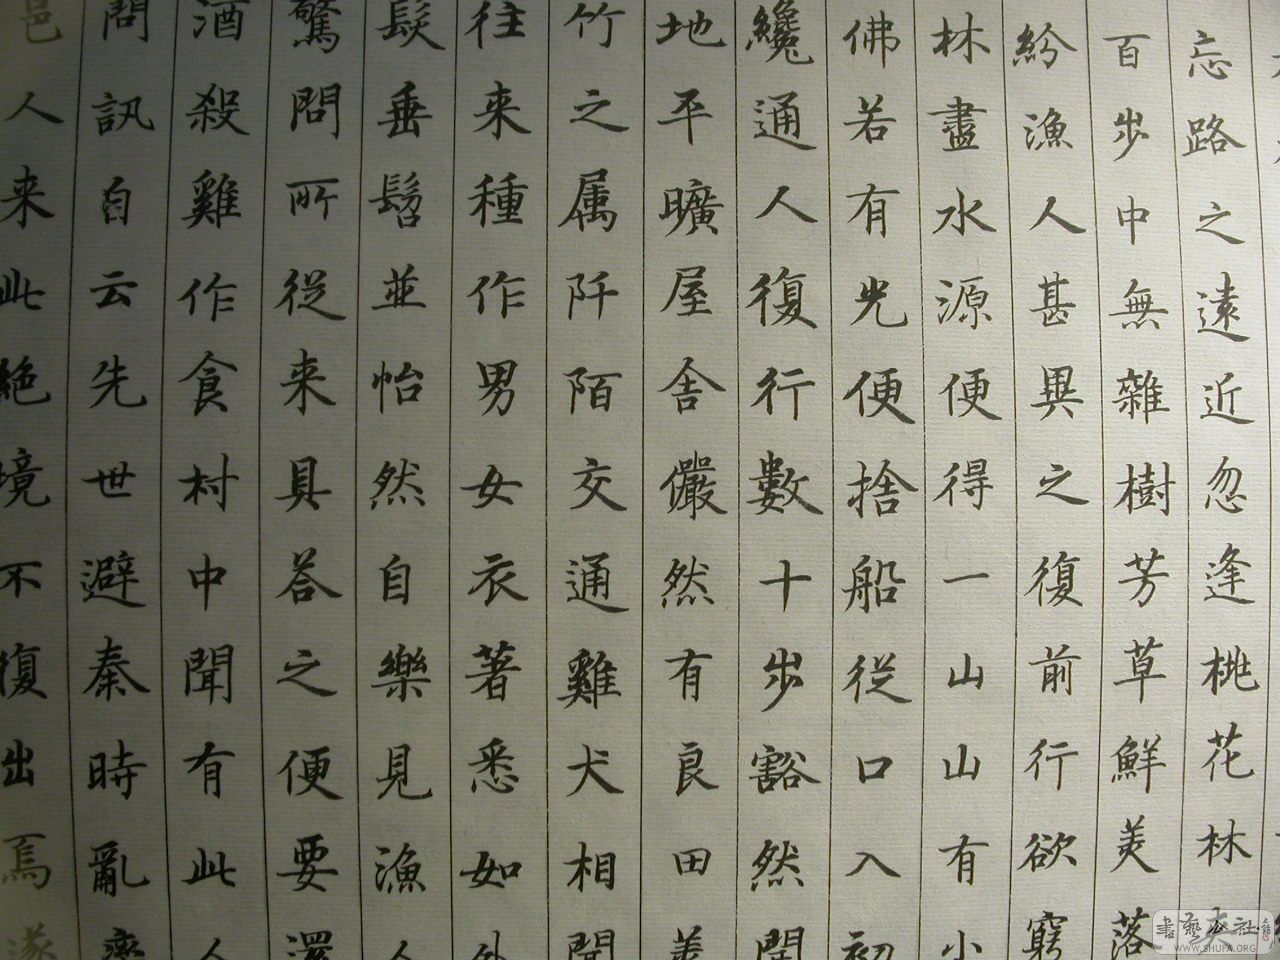 忘路之遠近忽逢桃花林
百步中無雜樹芳草鮮美落
紛漁人甚異之復前行欲窮
林盡水源便得一山山有小
佛若有光便捨船從口入初
纔通人復行數十步豁然開
地平曠屋舍儼然有良田美
竹之属阡陌交通雞犬相聞
往来種作男女衣著悉如外
髮垂髫並怡然自樂見漁人
驚問所從来具答之便要還
酒殺雞作食村中聞有此人
問訊自云先世避秦時亂齊
邑人来此絶境不復出焉遂
書藝公社
WWW.SHUFA.ORG